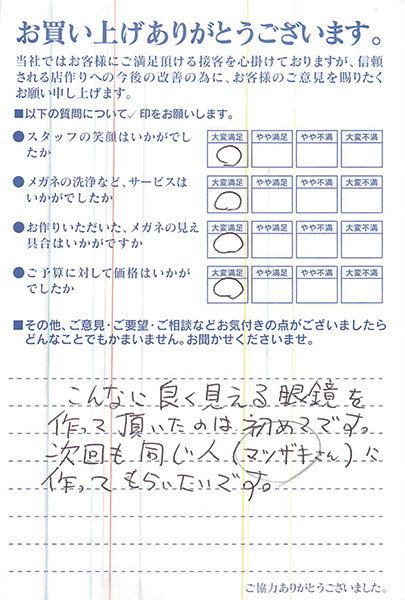 お買い上げありがとうございます。
当社ではお客様にご満足頂ける接客を心掛けておりますが、信頼
される店作りへの今後の改善の為に、お客様のご意見を賜りたく
お願い申し上げます。
■以下の質問について✓印をお願いします。
●スタッフの笑顔はいかがでし
たか
大変満足 やや満足 やや不満 大変不満
●メガネの洗浄など、サービスは
いかがでしたか
大変満足 やや満足 やや不満 大変不満
●お作りいただいた、メガネの見え
具合はいかがですか
大変満足 やや満足 やや不満 大変不満
●ご予算に対して価格はいかが
でしたか
大変満足 やや満足 やや不満 大変不満
■その他、ご意見・ご要望・ご相談などお気付きの点がございましたら
どんなことでもかまいません。お聞かせくださいませ。
こんなに良く見える眼鏡を
作って頂いたのは初めてです。
次回も同じ人(マツザキさん)に
作ってもらいたいです。
ご協力ありがとうございました。